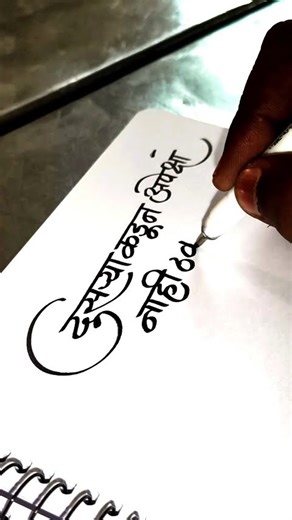 दुसऱ्या कडून अपेक्षा
नाही ठव